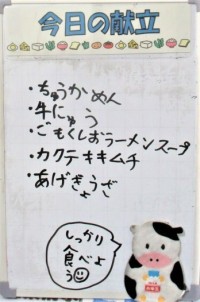 今日の献立
・ちゅうかめん
・牛にゅう
・ごもくしおラーメンスープ
・カクテキキムチ
・あげぎょうざ
しっかり
食べよ
う